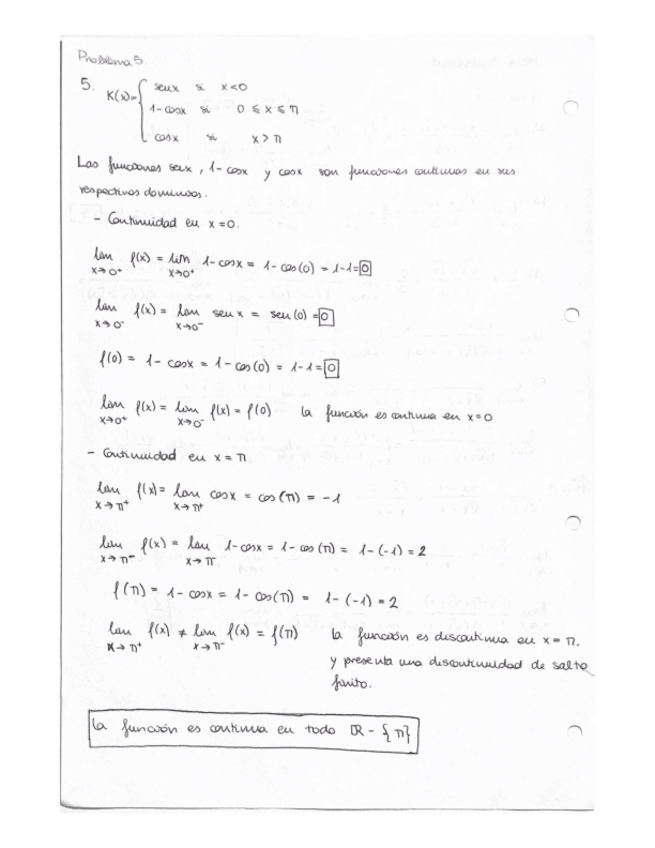 Problema 5.
5. K(x)= { sen x si x<0
1-cosx si 0 ≤ x ≤ π
cosx si x > π
Las funciones senx, 1-cosx y cosx son funciones continuas en sus
respectivos dominios.
- Continuidad en x=0.
lim x→0⁺ f(x) = lim x→0⁺ 1-cosx = 1-cos(0) = 1-1=0
lim x→0⁻ f(x) = lim x→0⁻ sen x = sen(0) =0
f(0) = 1-cosx = 1-cos(0) = 1-1=0
lim x→0⁺ f(x) = lim x→0⁻ f(x) = f(0) la función es continua en x=0
- Continuidad en x=π
lim x→π⁺ f(x)= lim x→π⁺ cosx = cos(π) = -1
lim x→π⁻ f(x) = lim x→π⁻ 1-cosx = 1-cos(π) = 1-(-1) = 2
f(π) = 1-cosx = 1-cos(π) = 1-(-1) = 2
lim x→π⁺ f(x) ≠ lim x→π⁻ f(x) = f(π) la función es discontinua en x=π,
y presenta una discontinuidad de salto
finito.
La función es continua en todo ℝ - {π}